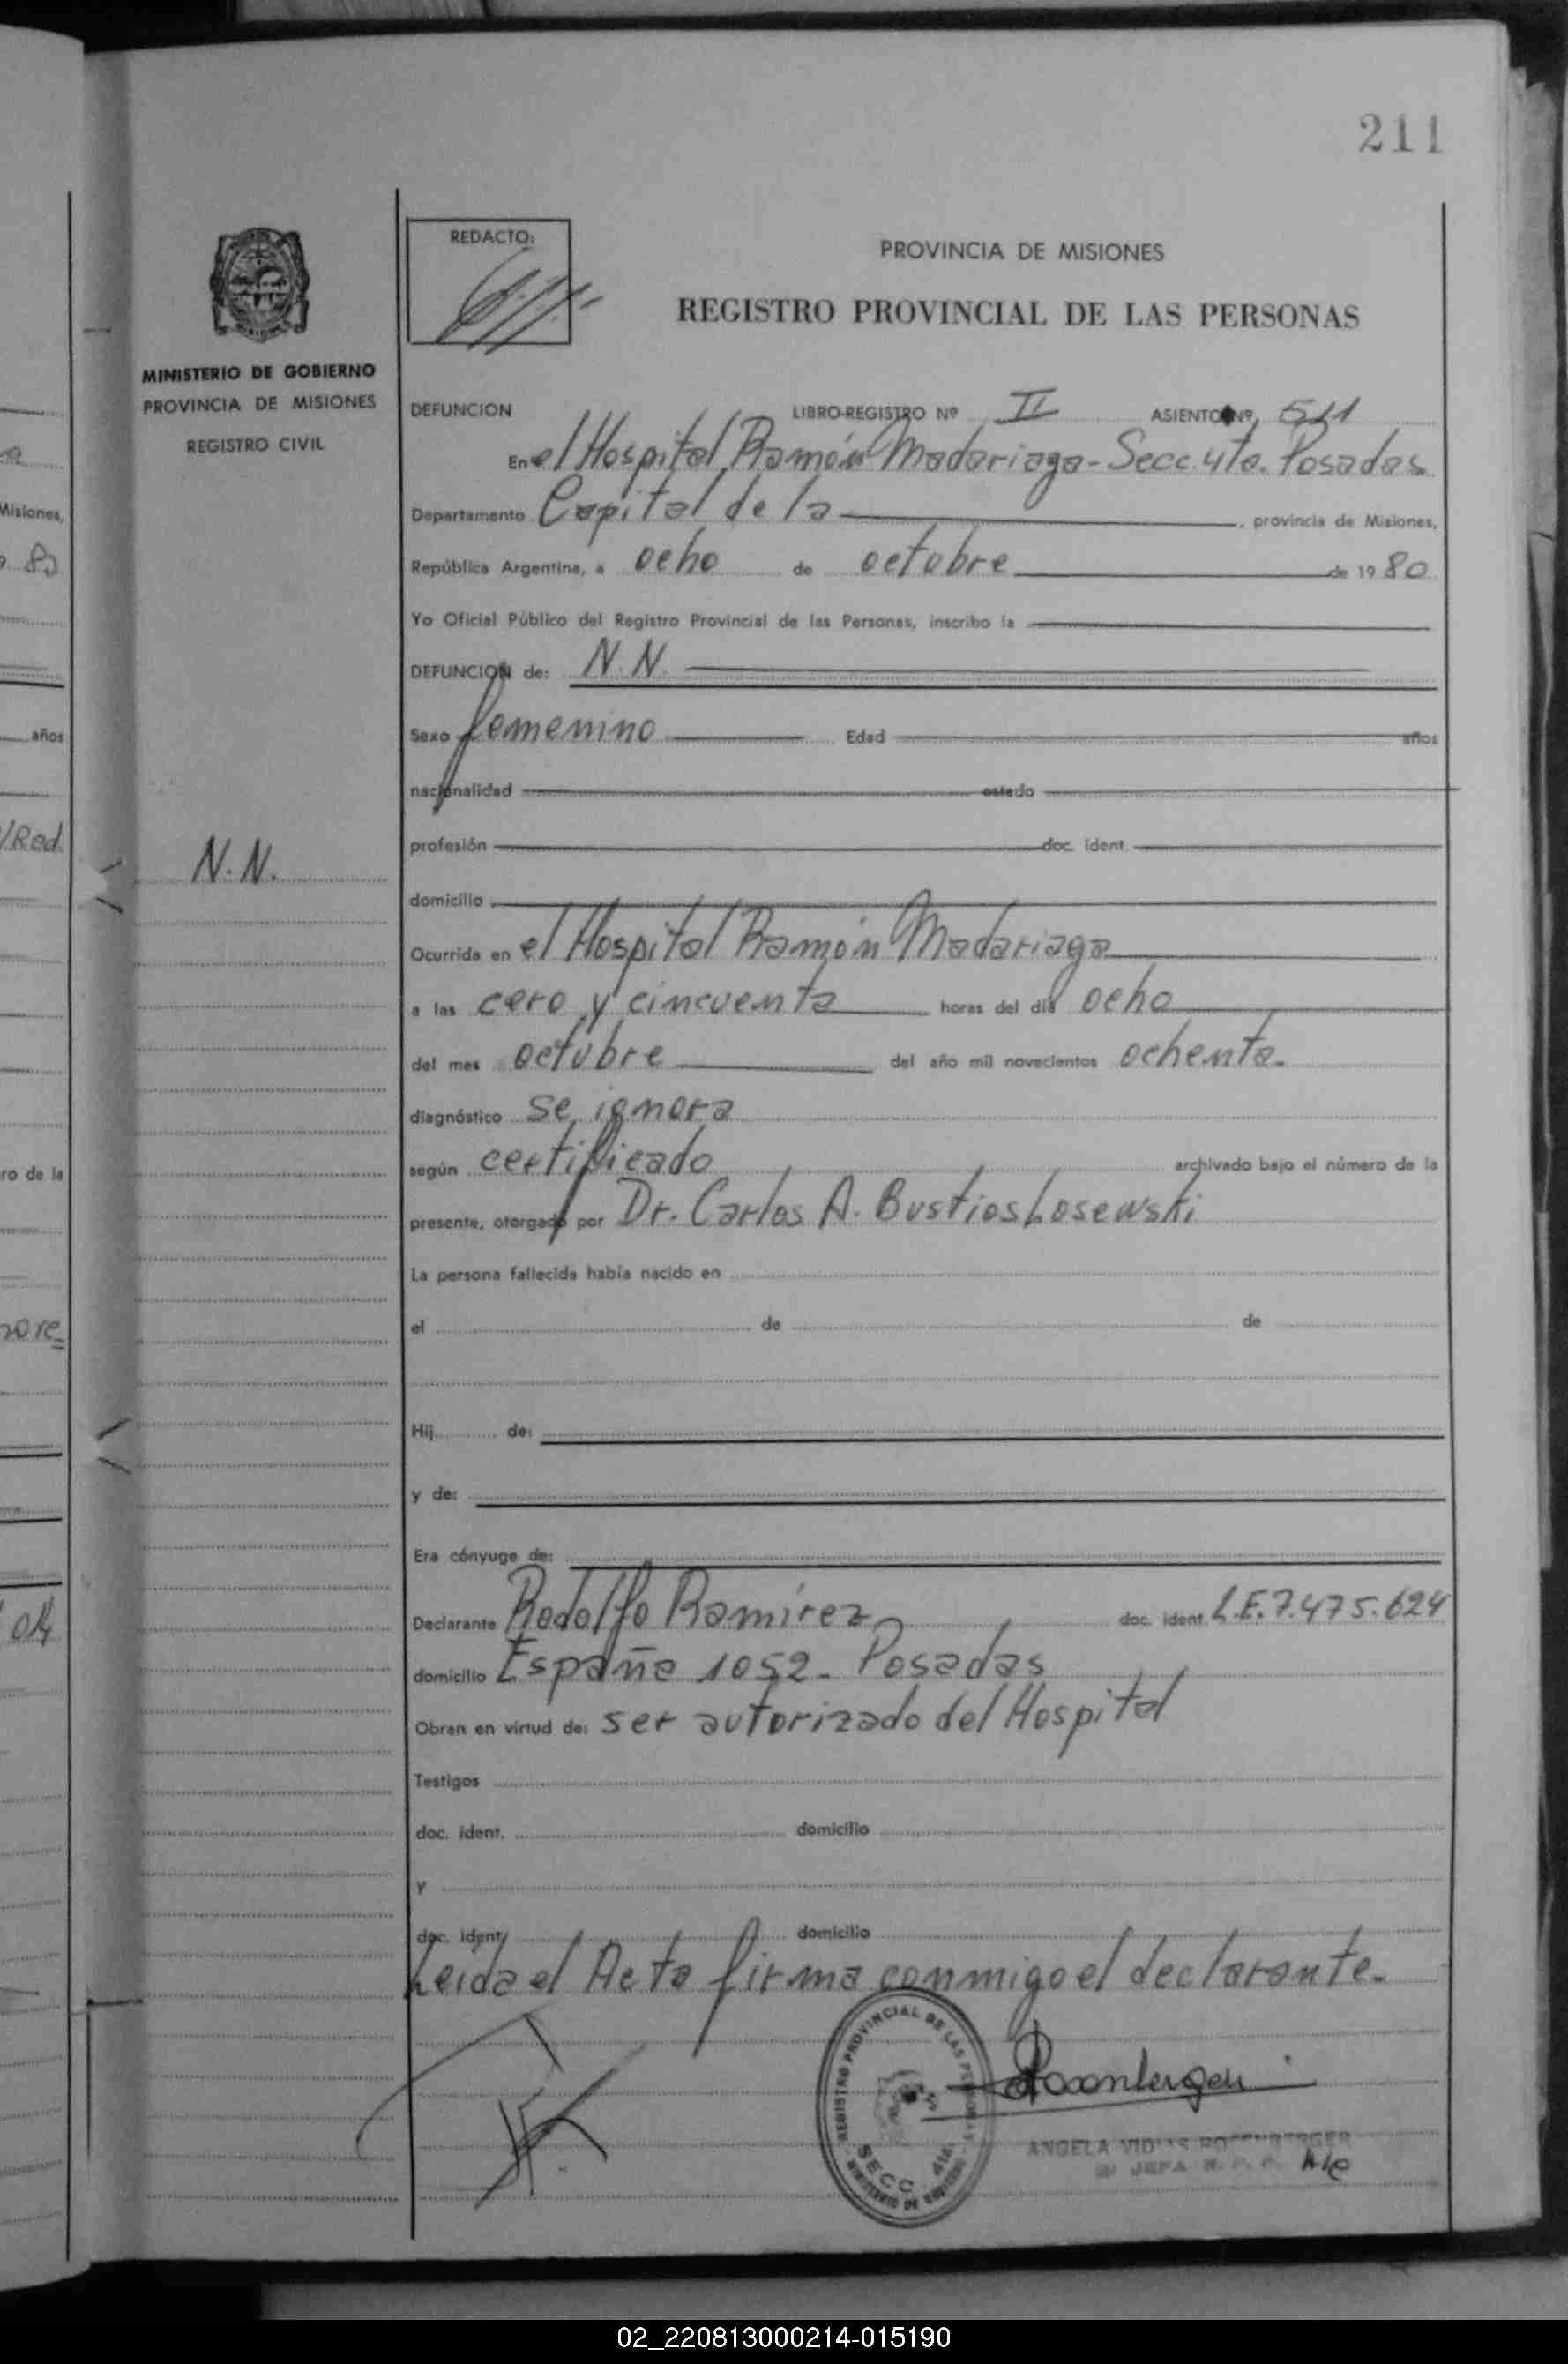 211
REDACTO:
PROVINCIA DE MISIONES
REGISTRO PROVINCIAL DE LAS PERSONAS
MINISTERIO DE GOBIERNO
PROVINCIA DE MISIONES
REGISTRO CIVIL
DEFUNCION LIBRO-REGISTRO Nº II ASIENTO Nº 511
En el Hospital Ramón Madariaga - Secc. 4ta. Posadas
Departamento Capital de la , provincia de Misiones,
República Argentina, a ocho de octubre de 1980
Yo Oficial Público del Registro Provincial de las Personas, inscribo la
DEFUNCION de: N. N.
Sexo femenino Edad años
nacionalidad estado
N. N.
profesión doc. ident.
domicilio
Ocurrida en el Hospital Ramón Madariaga
a las cero y cincuenta horas del día ocho
del mes octubre del año mil novecientos ochenta.
diagnóstico se ignora
según certificado archivado bajo el número de la
presente, otorgado por Dr. Carlos A. Bustios Losewski
La persona fallecida había nacido en
el de de
Hij de:
y de:
Era cónyuge de:
Declarante Rodolfo Ramírez doc. ident. L.E. 7.475.624
domicilio España 1052 - Posadas
Obran en virtud de: ser autorizado del Hospital
Testigos
doc. ident. domicilio
y
doc. ident. domicilio
Leida el Acta firma conmigo el declarante.
REGISTRO PROVINCIAL DE LAS PERSONAS
SECC. 4ta.
MINISTERIO DE GOBIERNO
ANGELA
JEFA
02_220813000214-015190
Misiones,
80
años
/Red.
ro de la